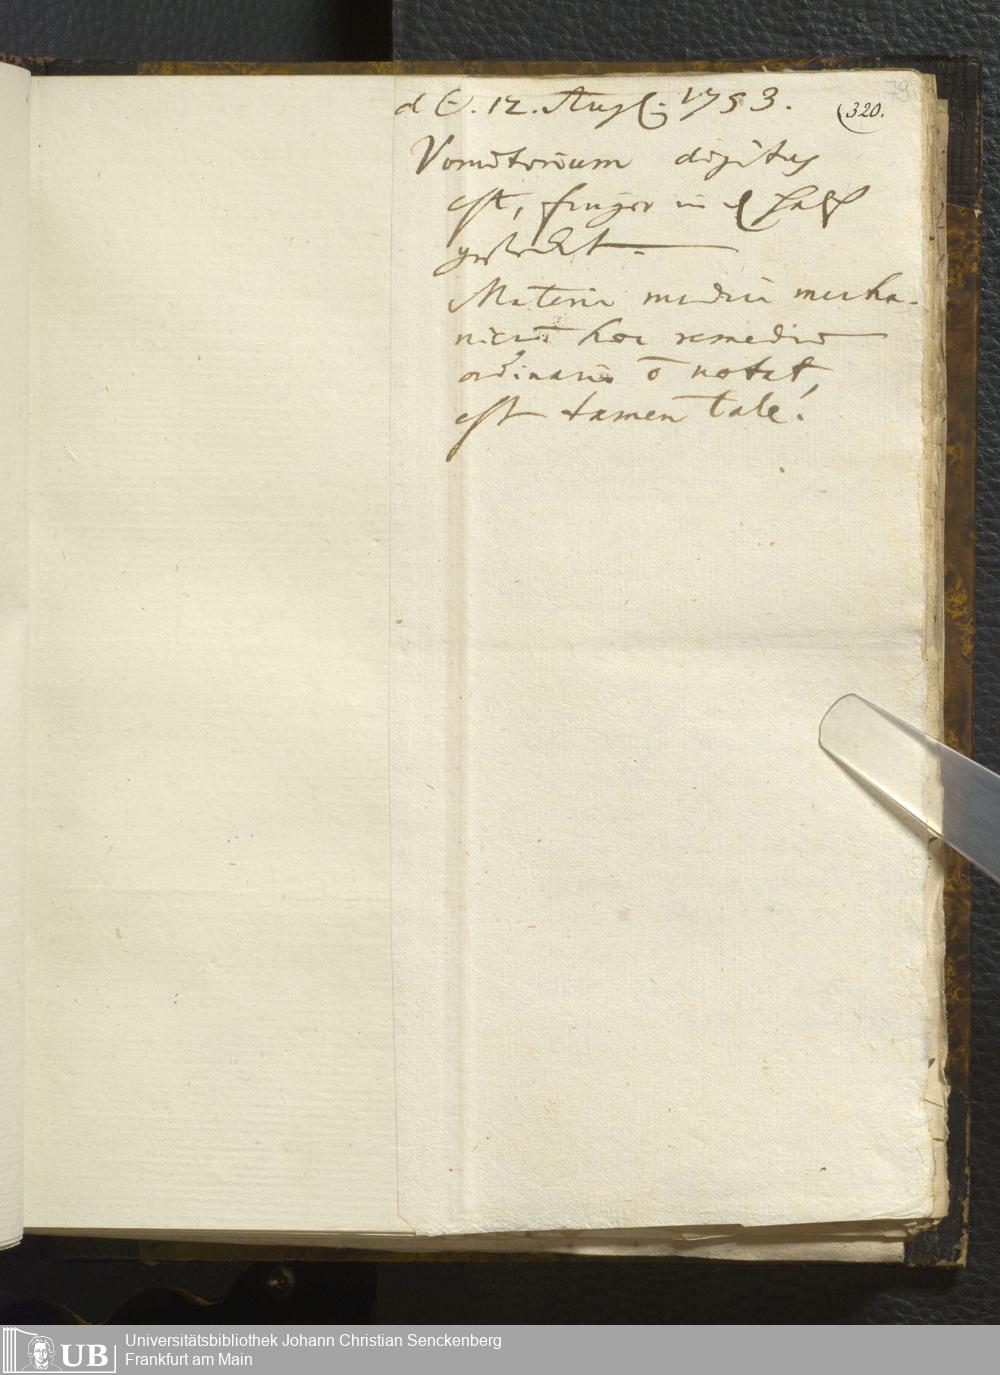 79
d . 12. Aug. 1753.
(320.
Vomitorium digitus
est, finger in d Halß
gestekt.
Materia medica mecha-
nica hoc remedio
ordinario ō notat,
est tamen tale!
UB
Universitätsbibliothek Johann Christian Senckenberg
Frankfurt am Main